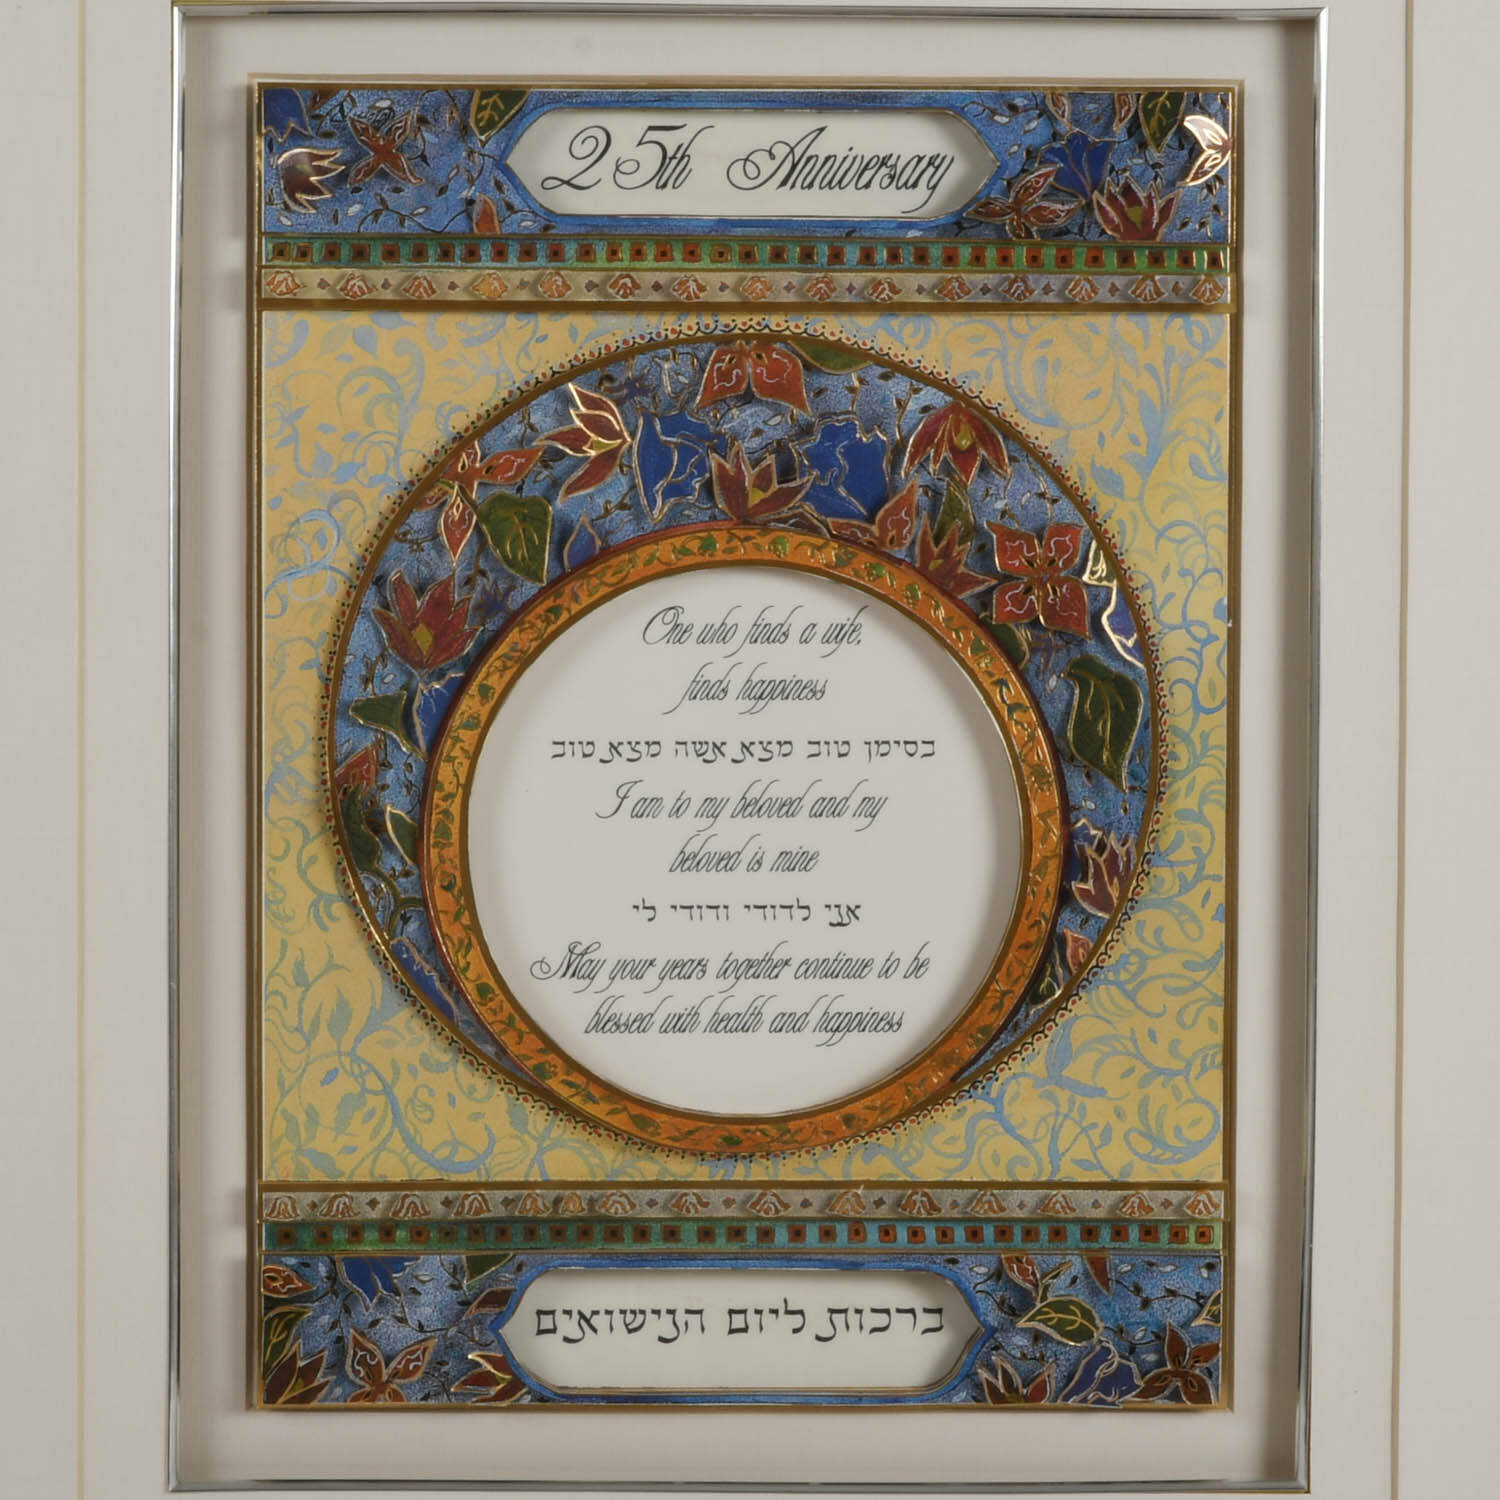 25th Anniversary
One who finds a wife,
finds happiness
בסימן טוב מצא אשה מצא טוב
I am to my beloved and my
beloved is mine
אני לדודי ודודי לי
May your years together continue to be
blessed with health and happiness
ברכות ליום הנישואים